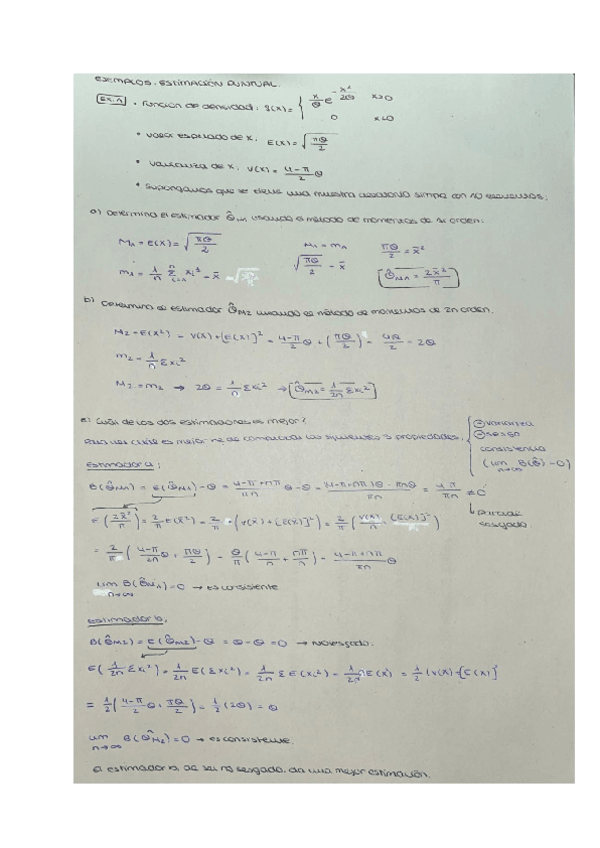 EJEMPLOS. ESTIMACIÓN PUNTUAL.
EX.1 • Función de densidad: f(x) = { x/θ e^(-x²/2θ) x>0
0 x<0
• valor esperado de x: E(X) = √(πθ/2)
• varianza de x: V(X) = (4-π)/2 θ
• Supongamos que se elige una muestra aleatoria simple con n
a) Determina el estimador θ̂M1 usando el método de momentos de 1r orden.
M1 = E(X) = √(πθ/2) M1 = m1 πθ/2 = x̄²
m1 = 1/n Σ xi = x̄ √(πθ/2) = x̄ θ̂M1 = 2x̄²/π
b) Determina el estimador θ̂M2 usando el método de momentos de 2n orden.
M2 = E(X²) = V(X) + [E(X)]² = (4-π)/2 θ + (πθ/2) = 4θ/2 = 2θ
m2 = 1/n Σxi²
M2 = m2 → 2θ = 1/n Σxi² → θ̂M2 = 1/2n Σxi²
c) Cuál de los dos estimadores es mejor?
Para ver cuál es mejor he de comentar las siguientes 3 propiedades.
⊖ varianza
⊖ sesgo
consistencia
(lim n→∞ B(θ̂) = 0)
Estimador a:
B(θ̂M1) = E(θ̂M1) - θ = (4-π+nπ)/πn θ - θ = ≠ 0
↳ sesgado
E(2x̄²/π) = 2/π E(x̄²) = 2/π · (V(x̄) + [E(x̄)]²) = 2/π (V(X)/n + [E(X)]²)
= 2/π ( (4-π)/2n θ + πθ/2 ) = θ/π ( (4-π)/n + nπ/n ) = (4-π+nπ)/πn θ
lim n→∞ B(θ̂M1) = 0 → es consistente
Estimador b.
B(θ̂M2) = E(θ̂M2) - θ = θ - θ = 0 → No sesgado.
E(1/2n Σxi²) = 1/2n E(Σxi²) = 1/2n ΣE(xi²) = 1/2n nE(X) = 1/2 (V(X) + [E(X)]²
= 1/2 ( (4-π)/2 θ + πθ/2 ) = 1/2 (2θ) = θ
lim n→∞ B(θ̂M2) = 0 → es consistente.
El estimador b, al ser no sesgado, da una mejor estimación.